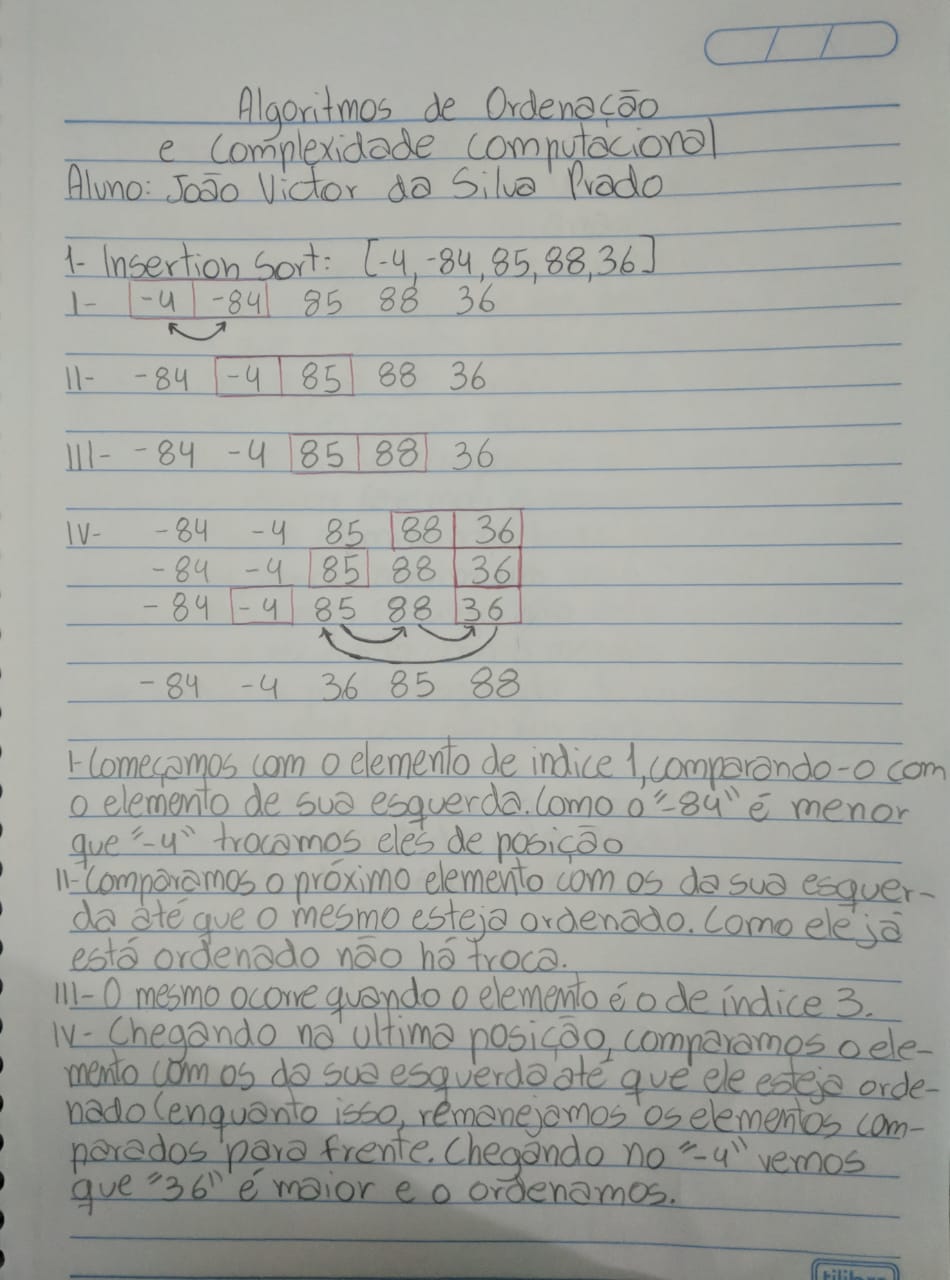 Algoritmos de Ordenação
e Complexidade Computacional
Aluno: João Victor da Silva Prado
1- Insertion Sort: [-4, -84, 85, 88, 36]
I- -4 -84 85 88 36
II- -84 -4 85 88 36
III- -84 -4 85 88 36
IV- -84 -4 85 88 36
-84 -4 85 88 36
-84 -4 85 88 36
-84 -4 36 85 88
I-Começamos com o elemento de indice 1, comparando-o com
o elemento de sua esquerda. Como o "-84" é menor
que "-4" trocamos eles de posição
II-Comparamos o próximo elemento com os da sua esquer-
da até que o mesmo esteja ordenado. Como ele já
está ordenado não há troca.
III-O mesmo ocorre quando o elemento é o de índice 3.
IV- Chegando na ultima posição, comparamos o ele-
mento com os da sua esquerda até que ele esteja orde-
nado (enquanto isso, remanejamos os elementos com-
parados para frente. Chegando no "-4" vemos
que "36" é maior e o ordenamos.